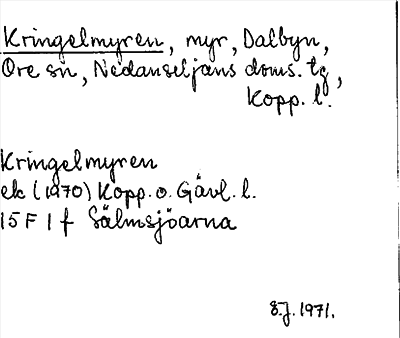 Kringelmyren, myr, Dalbyn,
Ore sn, Nedansiljans doms. tg,
Kopp. l.
Kringelmyren
ek (1970) Kopp. o. Gävl. l.
15 F 1 f Sälmsjöarna
S.J. 1971.